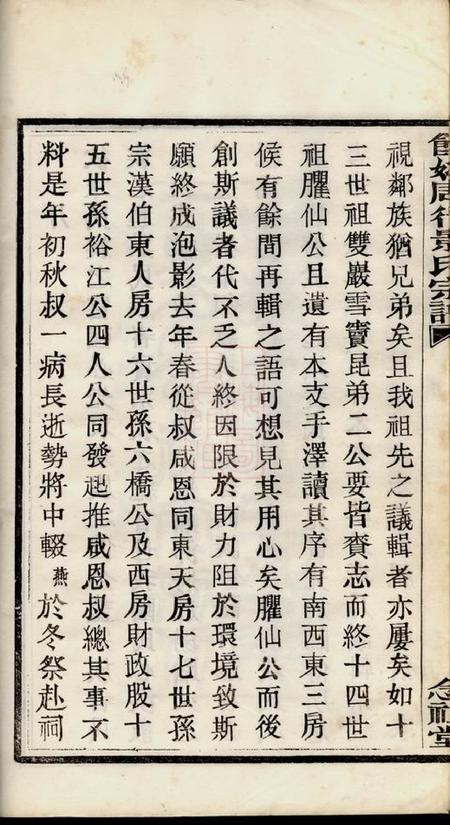 視鄰族猶兄弟矣且我祖先之議輯者亦屢矣如十
三世祖雙巖雪竇昆弟二公要皆賷志而終十四世
祖臞仙公且遺有本支手澤讀其序有南西東三房
候有餘間再輯之語可想見其用心矣臞仙公而後
創斯議者代不乏人終因限於財力阻於環境致斯
願終成泡影去年春從叔咸恩同東天房十七世孫
宗漢伯東人房十六世孫六橋公及西房財政股十
五世孫裕江公四人公同發起推咸恩叔總其事不
料是年初秋叔一病長逝勢將中輟燕於冬祭赴祠